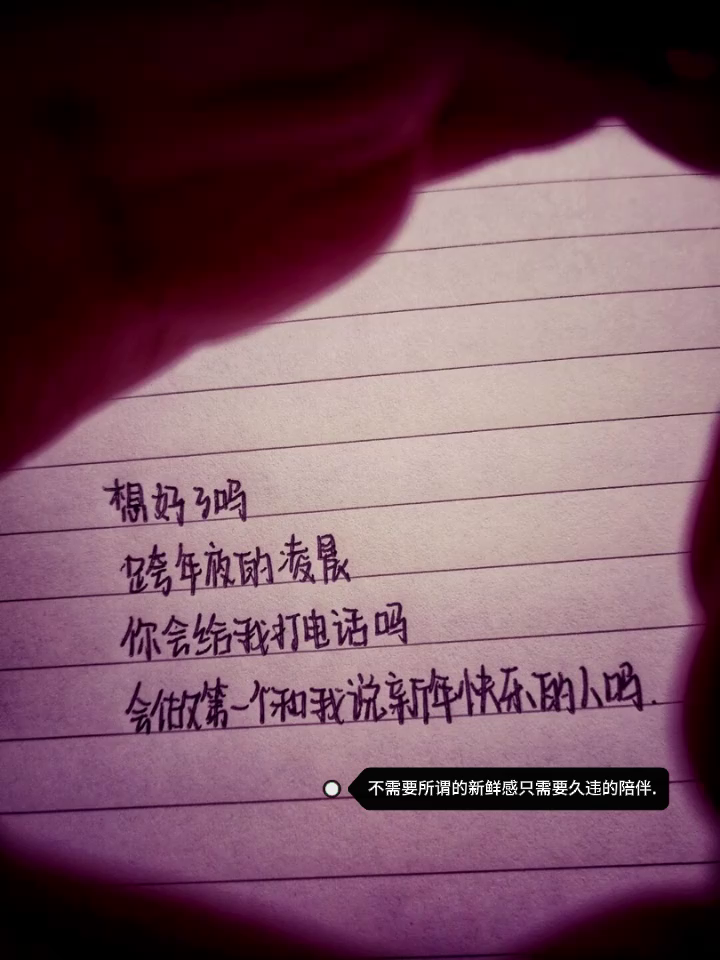 想好了吗
跨年夜的凌晨
你会给我打电话吗
会做第一个和我说新年快乐的人吗.
不需要所谓的新鲜感只需要久违的陪伴.